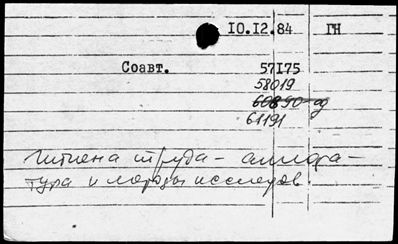 10.12.84 ГН
Соавт. 57175
58019
60890-ад
61191
гигиена труда - аппара-
тура и методы исследов.